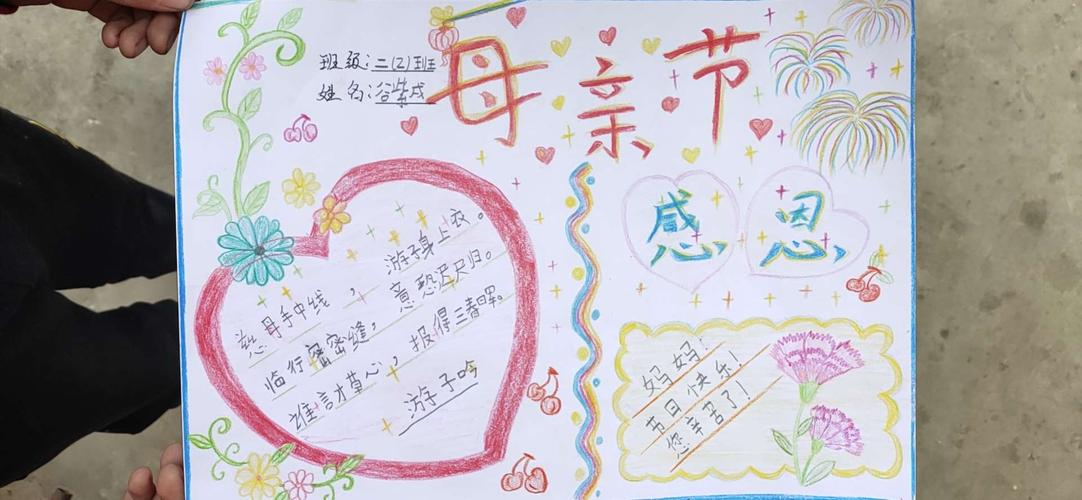 母亲节
班级:二(2)班
姓名:谷紫
慈母手中线,游子身上衣。
临行密密缝,意恐迟迟归。
谁言寸草心,报得三春晖。
游子吟
感恩
妈妈:
节日快乐!
您辛苦了!